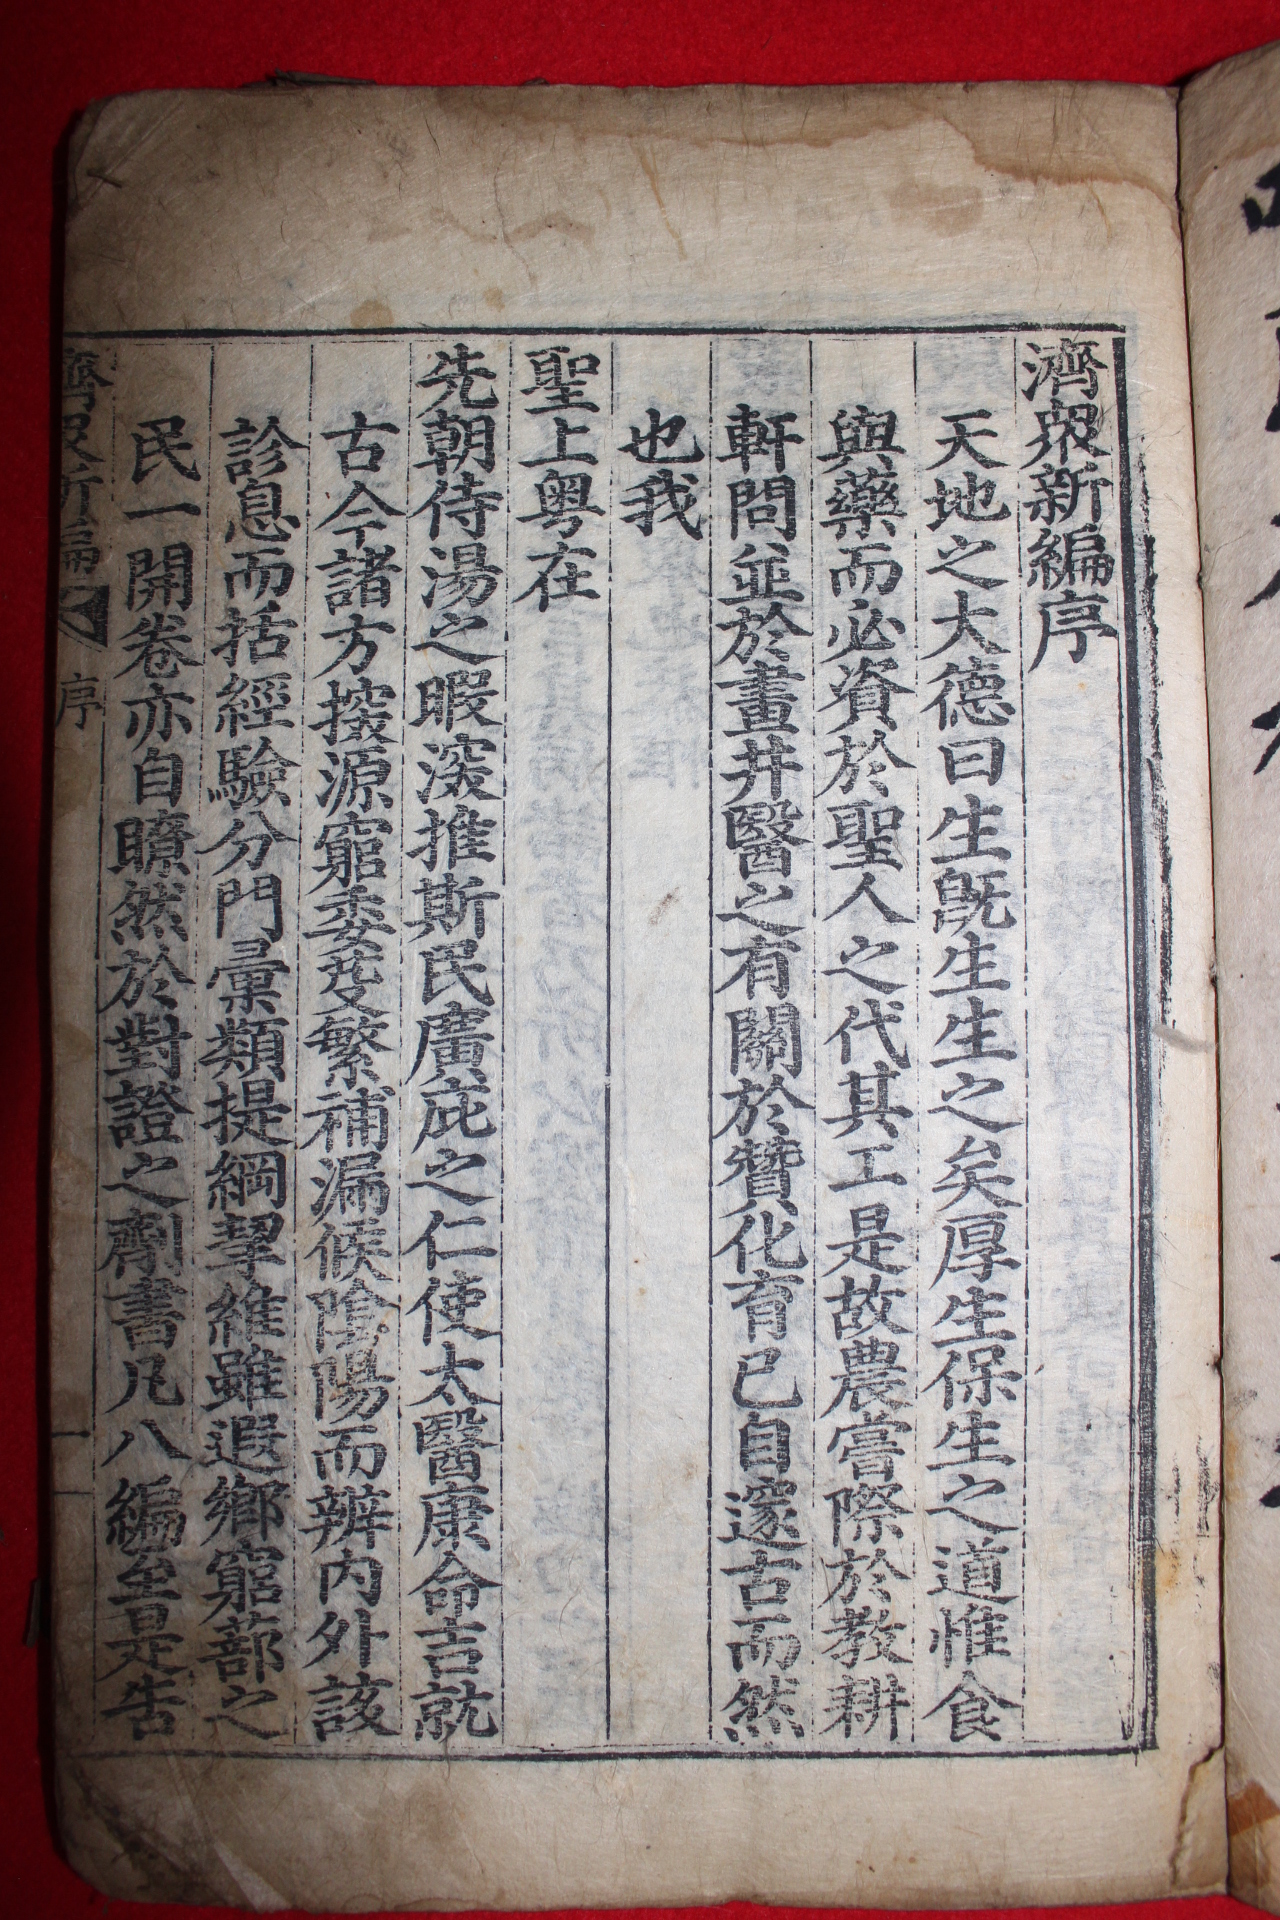 濟衆新編序
天地之大德曰生旣生生之矣厚生保生之道惟食
與藥而必資於聖人之代其工是故農嘗際於敎耕
軒問並於畫井醫之有關於贊化育已自邃古而然
也我
聖上粤在
先朝侍湯之暇深推斯民廣庇之仁使太醫康命吉就
古今諸方探源窮委芟繁補漏候陰陽而辨內外該
診息而括經驗分門彙類提綱挈維雖遐鄕窮蔀之
民一開卷亦自瞭然於對證之劑書凡八編旣告
濟衆新編 序
一